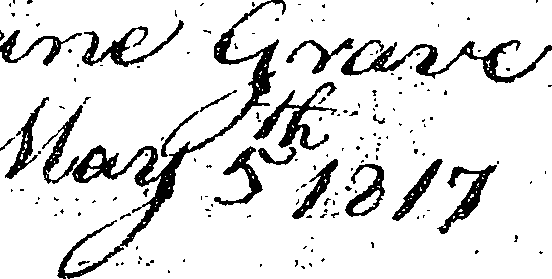 ane Grave
May 5th 1817